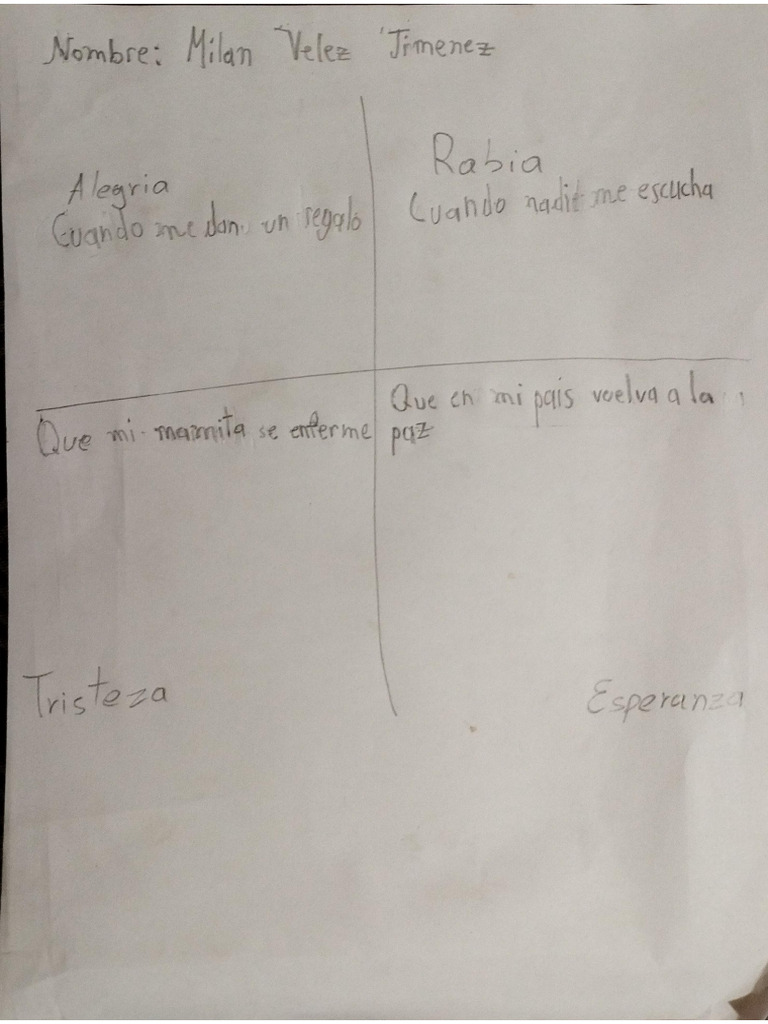 Nombre: Milan Velez Jimenez
Alegria
Cuando me dan un regalo
Rabia
Cuando nadie me escucha
Que mi mamita se enferme
Tristeza
Que en mi pais vuelva a la
paz
Esperanza